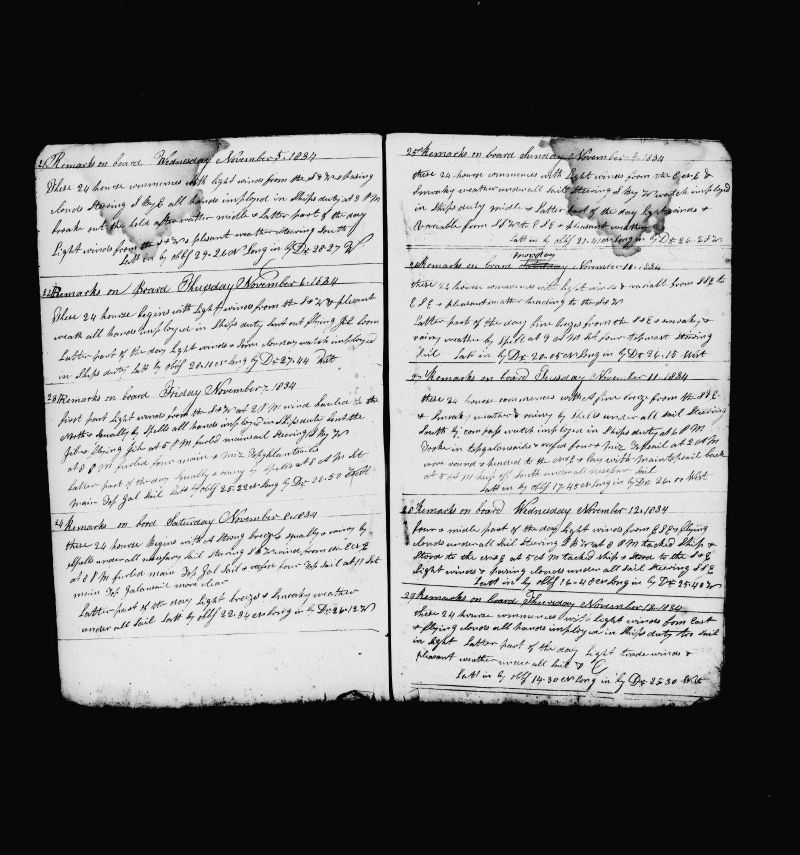 21 Remarks on board Wednesday November 5. 1834
These 24 hourse commences with light winds from the S & W & Pasing
clouds Steering S By E all hands imployed in Ships duty at 3 P M
broake out the hold after watter midle & Latter part of the day
Light winds from the S & W & plesant weather Steering South
Latt in by obsf 29.26 N Long in by Dr 28.27 W
22 Remarks on Board Thursday November 6. 1834
These 24 hourse begins with light winds from the S & W & plesent
weath all hands imployed in Ships duty Sent out flying Jib boom
Latter part of the day Light winds & Some cloudy watch imployed
in Ships duty Latt by obsf 28.10 N Long by Dr 27.44 West
23 Remarks on board Friday November 7. 1834
first part Light winds from the S & W at 2 P M wind hauled to the
North & Squally by Spells all hands imployed in Ships duty bent the
Jib & flying Jib at 5 P M furled mainsail Steering S By W
at 8 P M furled four main & miz Topgalantsails
Latter part of day Squally & rainy by Spells at 8 A M Set
main Top Gal Sail Latt by obsf 25.22 N Long by Dr 26.50 West
24 Remarks on bord Saturday November 8. 1834
these 24 hourse Begins with A Strong breeze & Squally & rainy by
Spells under all nessery Sail Steering S B W wind from the E N E
at 8 P M furled main Top Gal Sail & reefed four Top Sail at 11 Set
main Top Galansail more clear
Latter part of the day Light breeze & Smoaky weather
under all Sail Latt by obsf 22.34 N Long in by Dr 26.12 W
25 Remarks on board Sunday November 9. 1834
these 24 hourse commences with Light winds from the E N E &
Smoaky weather under all Sail Steering S By W watch imployed
in Ships duty midle & Latter part of the day light winds &
Variable from S S W to E S E & pleasant weather
Latt in by obsf 21.41 N Long in by Dr 26.28 W
monday
26 Remarks on board November 10. 1834
these 24 hourse commences with light winds & variable from S S E to
E S E & pleasant watter heading to the S & W
Latter part of the day fine brezes from the S & E & smoaky &
rainy weather by Spells at 9 A M Set four topmast steering
Sail Latt in by Dr 20.05 N Long in by Dr 26.15 West
27 Remarks on board Tuesday November 11. 1834
these 24 hourse commences with A fine breze from the S S E
& Smoaky weather & rainy by Spells under all Sail Steering
South by compass watch imployed in Ships duty at 6 P M
Tooke in topgalansails & reefed four & miz Topsail at 2 A M
wore round & headed to the N & E & lay with maintopsail back
at 5 A M kep off South under all nessesary Sail
Latt in by obsf 17.49 N Long in by Dr 26.00 West
28 Remarks on board Wednesday November 12. 1834
four & midle part of the day Light winds from E S E & flying
clouds under all Sail Steering S B W at 8 P M tacked Ship &
Stood to the N & E at 5 A M tacked Ship & Stood to the S & E
Light winds & pasing clouds under all Sail Steering S S E
Latt in by obsf 16.40 N Long in by Dr 25.40 W
29 Remarks on board Thursday November 13. 1834
these 24 hourse commences with light winds from East
& flying clouds all hands imployed in Ships duty two Sail
in Sight Latter part of the day Light trade winds &
Pleasant weather under all Sail
Latt in by obsf 14.30 N Long in by Dr 25.30 West